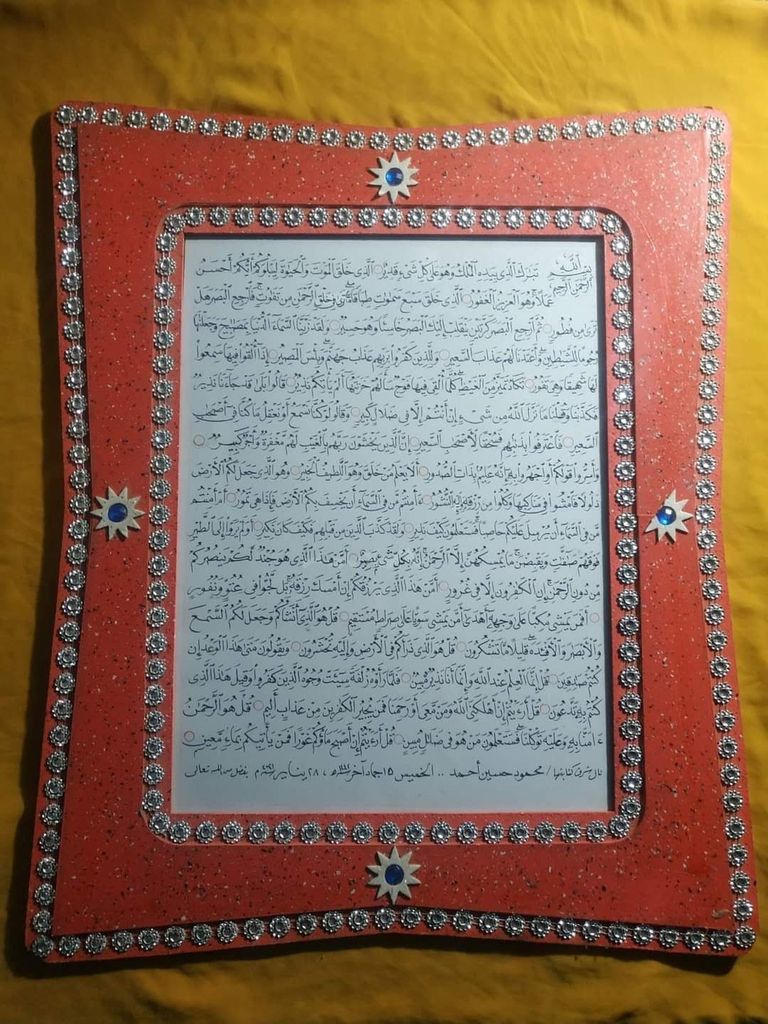 بسم الله الرحمن الرحيم تبارك الذي بيده الملك وهو على كل شيء قدير الذي خلق الموت والحياة ليبلوكم أيكم أحسن
عملا وهو العزيز الغفور الذي خلق سبع سموات طباقا ما ترى في خلق الرحمن من تفوت فارجع البصر هل
ترى من فطور ثم ارجع البصر كرتين ينقلب إليك البصر خاسئا وهو حسير ولقد زينا السماء الدنيا بمصبيح وجعلنها
رجوما للشيطين وأعتدنا لهم عذاب السعير وللذين كفروا بربهم عذاب جهنم وبئس المصير إذا ألقوا فيها سمعوا
لها شهيقا وهي تفور تكاد تميز من الغيظ كلما ألقي فيها فوج سألهم خزنتها ألم يأتكم نذير قالوا بلى قد جاءنا نذير
فكذبنا وقلنا ما نزل الله من شيء إن أنتم إلا في ضلل كبير وقالوا لو كنا نسمع أو نعقل ما كنا في أصحب
السعير فاعترفوا بذنبهم فسحقا لأصحب السعير إن الذين يخشون ربهم بالغيب لهم مغفرة وأجر كبير
وأسروا قولكم أو اجهروا به إنه عليم بذات الصدور ألا يعلم من خلق وهو اللطيف الخبير هو الذي جعل لكم الأرض
ذلولا فامشوا في مناكبها وكلوا من رزقه وإليه النشور ءأمنتم من في السماء أن يخسف بكم الأرض فإذا هي تمور أم أمنتم
من في السماء أن يرسل عليكم حاصبا فستعلمون كيف نذير ولقد كذب الذين من قبلهم فكيف كان نكير أولم يروا إلى الطير
فوقهم صفت ويقبضن ما يمسكهن إلا الرحمن إنه بكل شيء بصير أمن هذا الذي هو جند لكم ينصركم
من دون الرحمن إن الكفرون إلا في غرور أمن هذا الذي يرزقكم إن أمسك رزقه بل لجوا في عتو ونفور
أفمن يمشي مكبا على وجهه أهدى أمن يمشي سويا على صراط مستقيم قل هو الذي أنشأكم وجعل لكم السمع
والأبصر والأفئدة قليلا ما تشكرون قل هو الذي ذرأكم في الأرض وإليه تحشرون ويقولون متى هذا الوعد إن
كنتم صدقين قل إنما العلم عند الله وإنما أنا نذير مبين فلما رأوه زلفة سيئت وجوه الذين كفروا وقيل هذا الذي
كنتم به تدعون قل أرءيتم إن أهلكني الله ومن معي أو رحمنا فمن يجير الكفرين من عذاب أليم قل هو الرحمن
ءامنا به وعليه توكلنا فستعلمون من هو في ضلل مبين قل أرءيتم إن أصبح ماؤكم غورا فمن يأتيكم بماء معين
نال شرف كتابتها / محمود حسين أحمد .. الخميس ١٥ جماد آخر ١٤٤٢هـ ، ٢٨ يناير ٢٠٢١م بفضل من الله تعالى